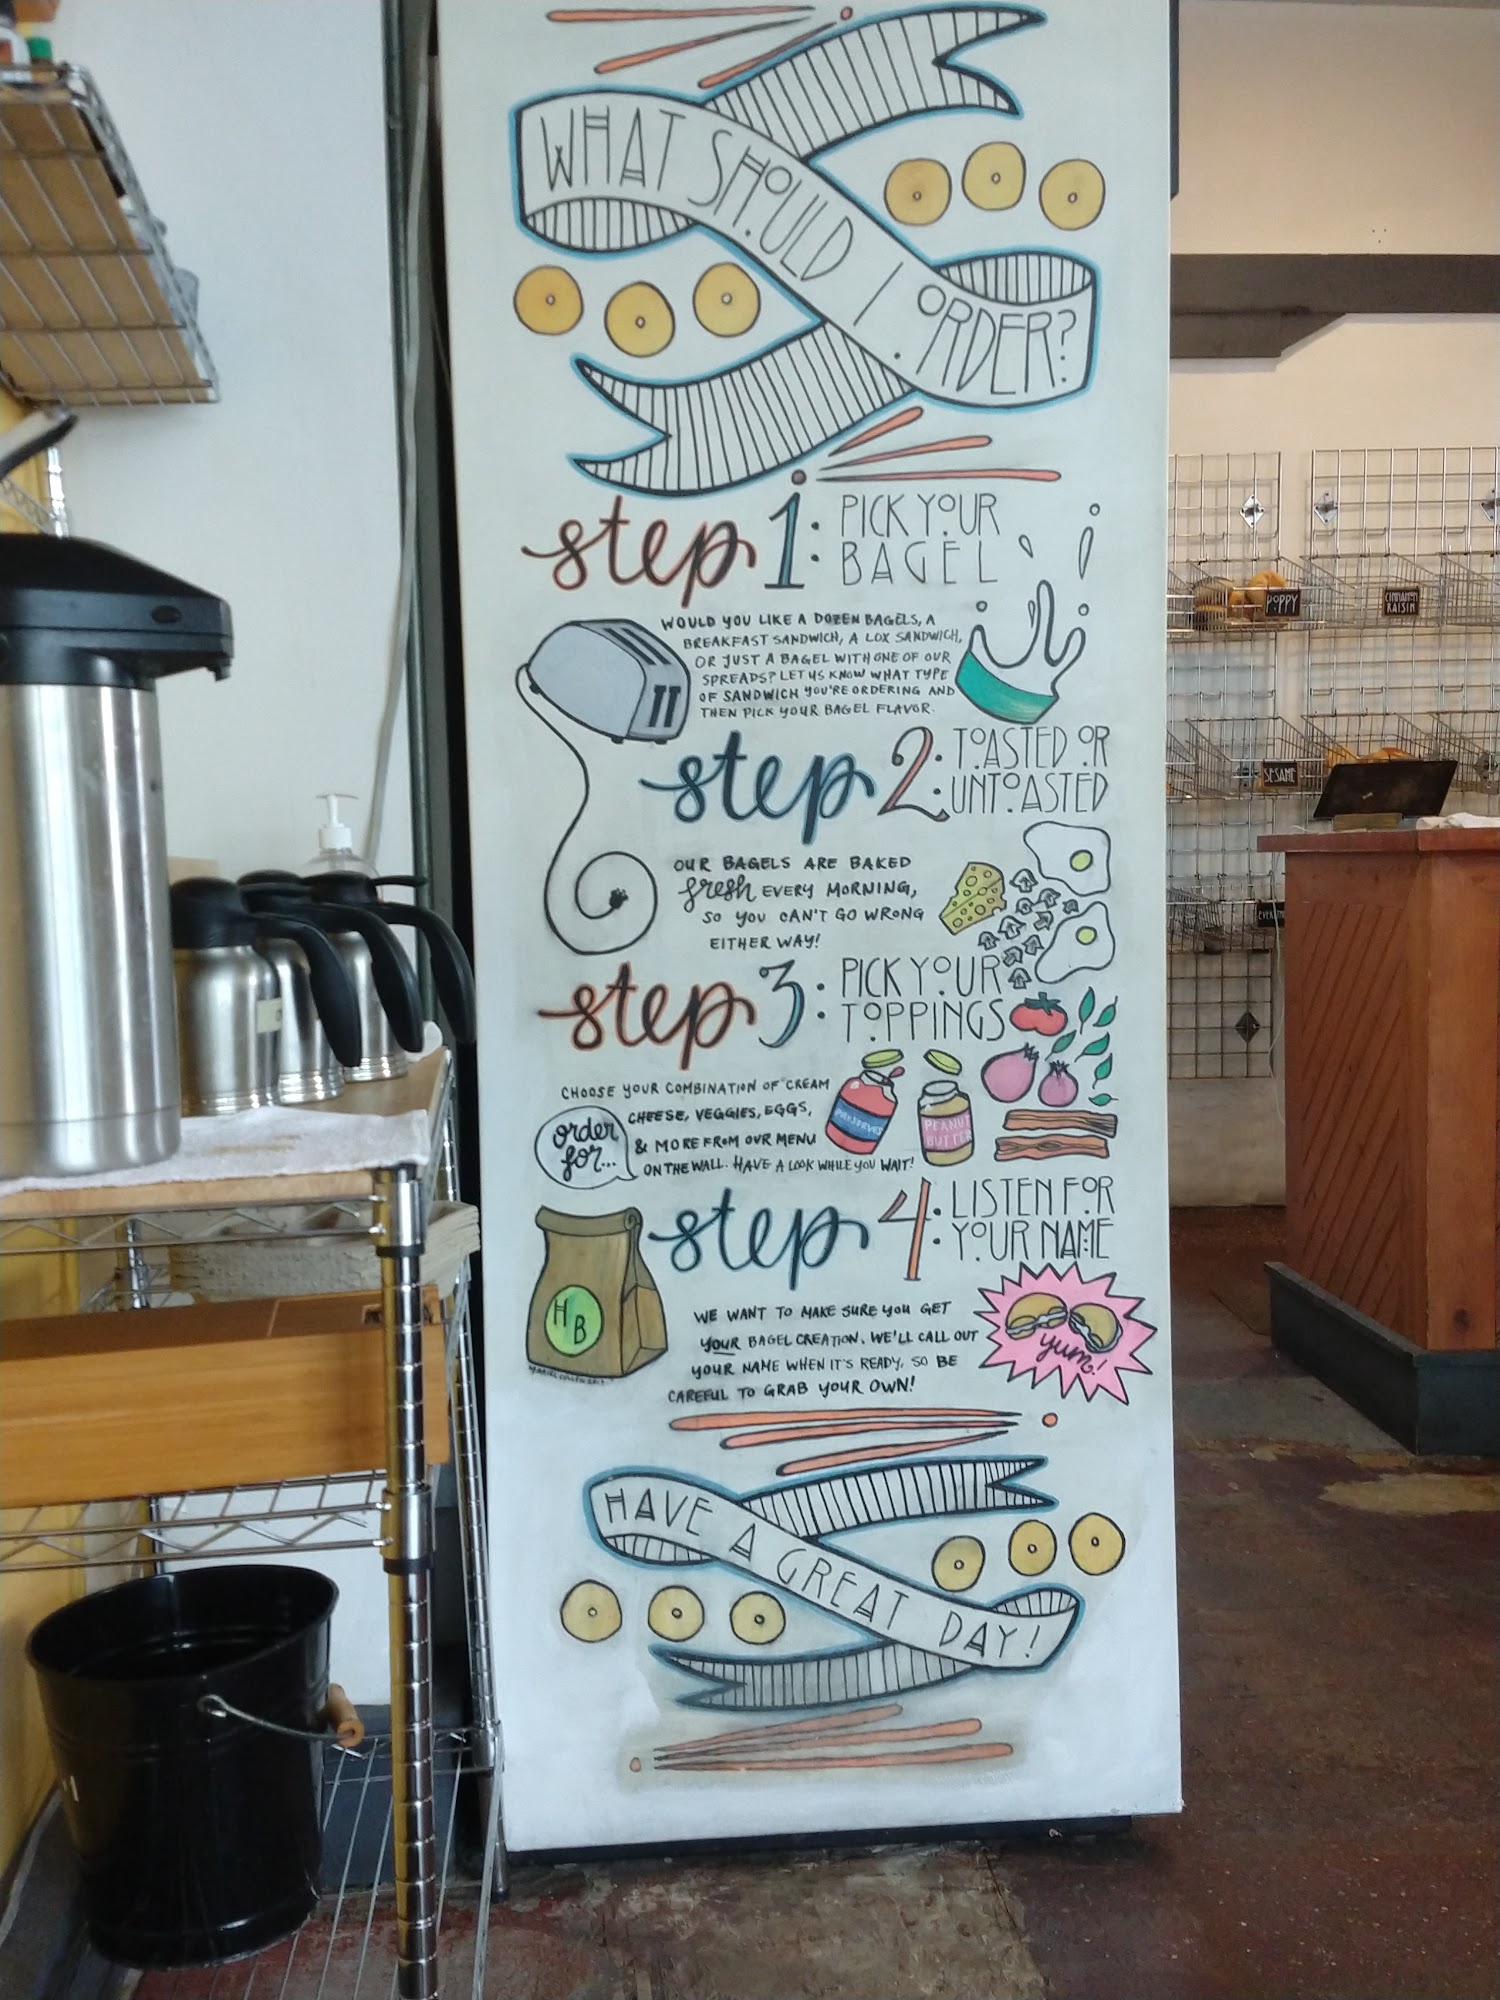 WHAT SHOULD I ORDER?
step 1: PICK YOUR
BAGEL
WOULD YOU LIKE A DOZEN BAGELS, A
BREAKFAST SANDWICH, A LOX SANDWICH,
OR JUST A BAGEL WITH ONE OF OUR
SPREADS? LET US KNOW WHAT TYPE
OF SANDWICH YOU'RE ORDERING AND
THEN PICK YOUR BAGEL FLAVOR.
step 2: TOASTED OR
UNTOASTED
OUR BAGELS ARE BAKED
fresh EVERY MORNING,
SO YOU CAN'T GO WRONG
EITHER WAY!
step 3: PICK YOUR
TOPPINGS
CHOOSE YOUR COMBINATION OF CREAM
CHEESE, VEGGIES, EGGS,
& MORE FROM OUR MENU
ON THE WALL. HAVE A LOOK WHILE YOU WAIT!
order
for...
PRESERVES
PEANUT
BUTTER
step 4: LISTEN FOR
YOUR NAME
WE WANT TO MAKE SURE YOU GET
YOUR BAGEL CREATION. WE'LL CALL OUT
YOUR NAME WHEN IT'S READY, SO BE
CAREFUL TO GRAB YOUR OWN!
H
B
yum!
HAVE A GREAT DAY!
POPPY
CINNAMON
RAISIN
SESAME